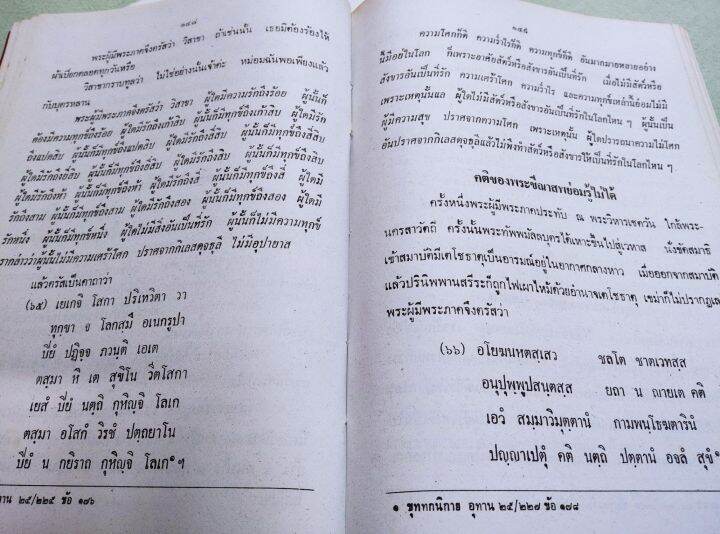 ๒๔๘
พระผู้มีพระภาคจึงตรัสว่า วิสาขา ถ้าเช่นนั้น เธอมิต้องร้องไห้
ผ้าเปียกตลอดทุกวันหรือ
วิสาขากราบทูลว่า ไม่ใช่อย่างนั้นเจ้าค่ะ หม่อมฉันพอเพียงแล้ว
กับบุตรหลาน
พระผู้มีพระภาคจึงตรัสว่า วิสาขา ผู้ใดมีความรักถึงร้อย ผู้นั้นก็
ต้องมีความทุกข์ถึงร้อย ผู้ใดมีรักถึงเก้าสิบ ผู้นั้นก็มีทุกข์ถึงเก้าสิบ ผู้ใดมีรัก
ถึงแปดสิบ ผู้นั้นก็มีทุกข์ถึงแปดสิบ
ผู้ใดมีรักถึงสี่สิบ ผู้นั้นก็มีทุกข์ถึงสี่สิบ
ผู้ใดมีรักถึงห้า ผู้นั้นก็มีทุกข์ถึงห้า ผู้ใดมีรักถึงสี่ ผู้นั้นก็มีทุกข์ถึงสี่ ผู้ใดมี
รักถึงสาม ผู้นั้นก็มีทุกข์ถึงสาม ผู้ใดมีรักถึงสอง ผู้นั้นก็มีทุกข์ถึงสอง ผู้ใดมี
รักหนึ่ง ผู้นั้นก็มีทุกข์หนึ่ง ผู้ใดไม่มีสิ่งอันเป็นที่รัก ผู้นั้นก็ไม่มีความทุกข์
รากล่าวว่าผู้นั้นไม่มีความเศร้าโศก ปราศจากกิเลสดุจธุลี ไม่มีอุปายาส
แล้วตรัสเป็นคาถาว่า
(๖๕) เยเกจิ โสกา ปริเทวิตา วา
ทุกฺขา จ โลกสฺมึ อเนกรูปา
ปิยํ ปฏิจฺจ ภวนฺติ เอเต
ตสฺมา หิ เต สุขิโน วีตโสกา
เยสํ ปิยํ นตฺถิ กุหิญฺจิ โลเก
ตสฺมา อโสกํ วิรชํ ปตฺถยาโน
ปิยํ น กยิราถ กุหิญฺจิ โลเก๑ ฯ
ทาน ๒๕/๒๒๕ ข้อ ๑๗๖
๒๔๙
ความโศกก็ดี ความร่ำไรก็ดี ความทุกข์ก็ดี อันมากมายหลายอย่าง
นี้มีอยู่ในโลก ก็เพราะอาศัยสัตว์หรือสังขารอันเป็นที่รัก เมื่อไม่มีสัตว์หรือ
สังขารอันเป็นที่รัก ความเศร้าโศก ความร่ำไร และความทุกข์เหล่านี้ย่อมไม่มี
เพราะเหตุนั้นแล ผู้ใดไม่มีสัตว์หรือสังขารอันเป็นที่รักในโลกไหน ๆ ผู้นั้นเป็น
ผู้มีความสุข ปราศจากความโศก เพราะเหตุนั้น ผู้ใดปรารถนาความไม่โศก
อันปราศจากกิเลสดุจธุลีแล้วไม่พึงทำสัตว์หรือสังขารให้เป็นที่รักในโลกไหน ๆ
คติของพระขีณาสพย่อมรู้ไม่ได้
ครั้งหนึ่งพระผู้มีพระภาคประทับ ณ พระวิหารเชตวัน ใกล้พระ-
นครสาวัตถี ครั้งนั้นพระทัพพมัลลบุตรได้เหาะขึ้นไปสู่เวหาส นั่งขัดสมาธิ
เข้าสมาบัติมีเตโชธาตุเป็นอารมณ์อยู่ในอากาศกลางหาว เมื่อออกจากสมาบัติ
แล้วปรินิพพานสรีระก็ถูกไฟเผาไหม้ด้วยอำนาจเตโชธาตุ เขม่าก็ไม่ปรากฏเล
พระผู้มีพระภาคจึงตรัสว่า
(๖๖) อโยฆนหตสฺเสว ชลโต ชาตเวทสฺส
อนุปุพฺพูปสนฺตสฺส ยถา น ญายเต คติ
เอวํ สมฺมาวิมุตฺตานํ กามพนฺโธฆตารินํ
ปญฺญาเปตุํ คติ นตฺถิ ปตฺตานํ อจลํ สุขํ๑
๑ ขุททกนิกาย อุทาน ๒๕/๒๒๗ ข้อ ๑๗๘